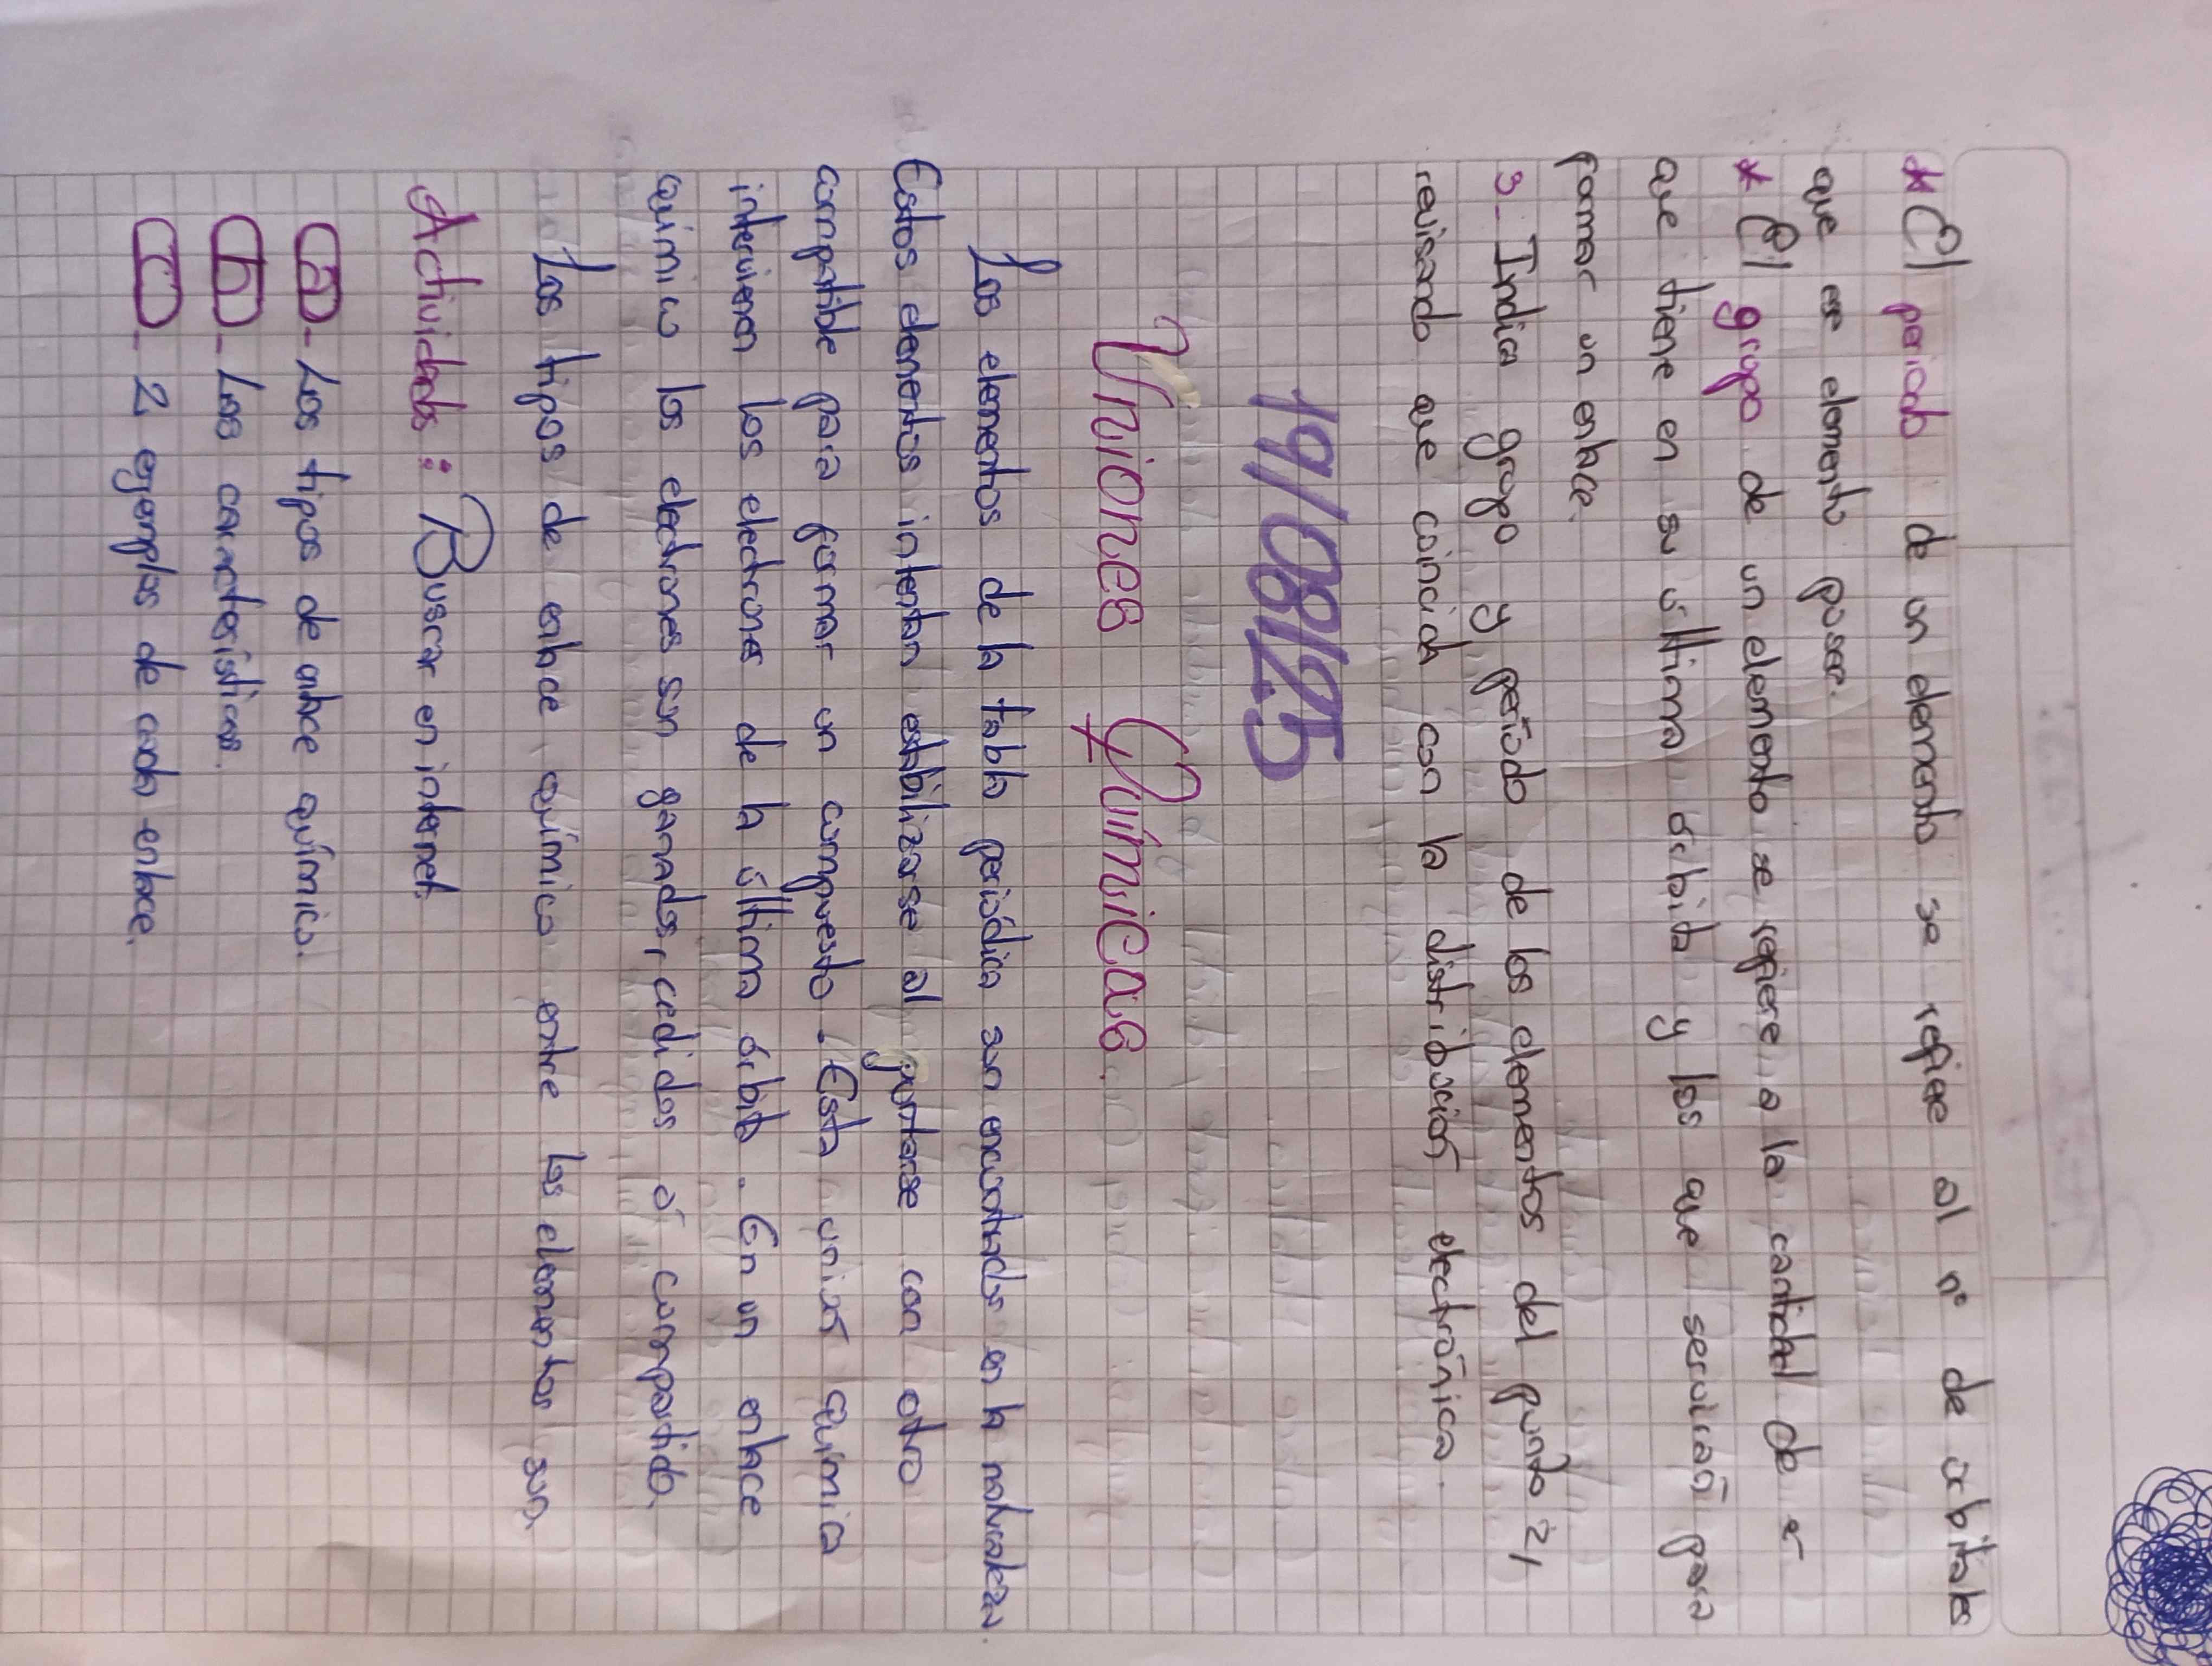 * El periodo de un elemento se refiere al n° de orbitales
que ese elemento posee.
* El grupo de un elemento se refiere a la cantidad de e-
que tiene en su última órbita y los que servirán para
formar un enlace.
3_ Indica grupo y período de los elementos del punto 2,
revisando que coincida con la distribución electrónica.
19/08/25
Uniones Químicas.
Los elementos de la tabla periódica son encontrados en la naturaleza.
Estos elementos intentan estabilizarse al juntarse con otro
compatible para formar un compuesto. Esta unión química
intervienen los electrones de la última órbita. En un enlace
químico los electrones son ganados, cedidos ó compartido.
Los tipos de enlace químico entre los elementos son,
Actividades: Buscar en internet
a - Los tipos de enlace químico.
b - Las características.
c - 2 ejemplos de cada enlace.